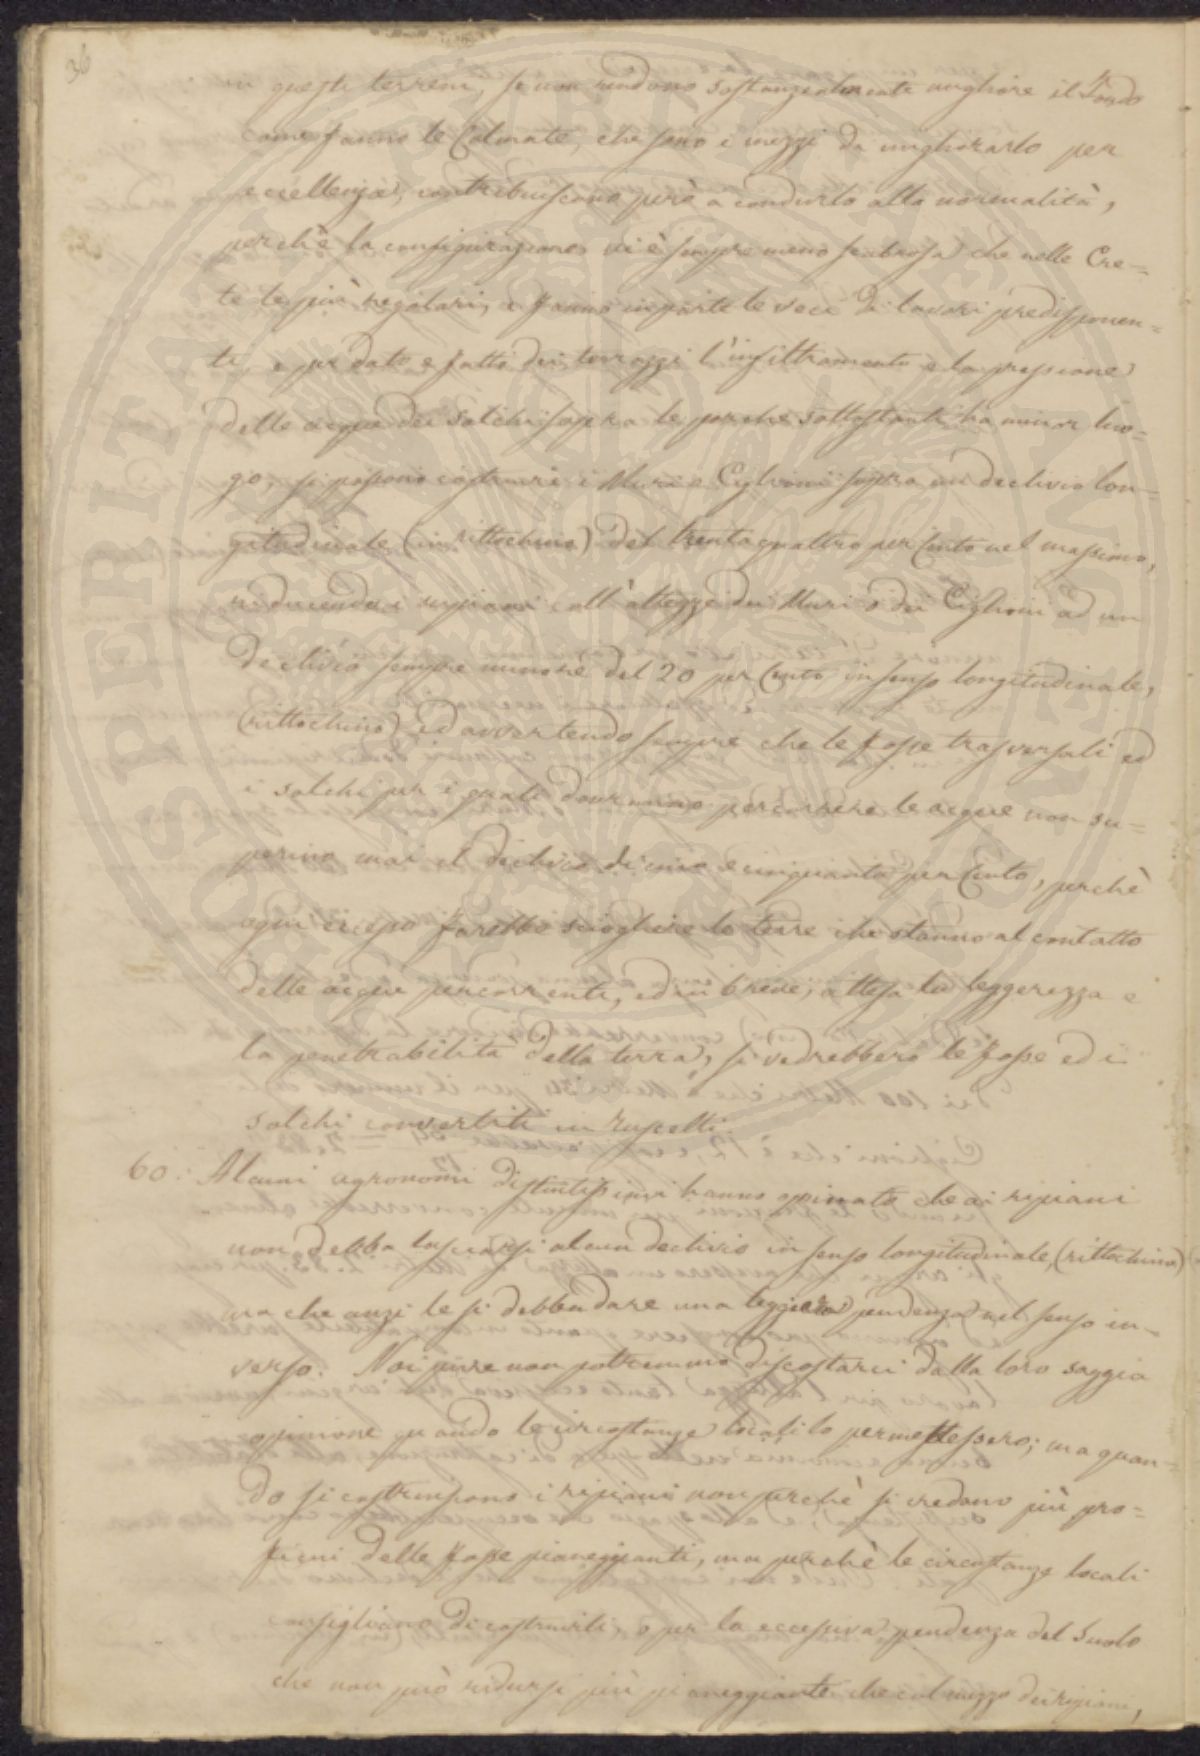 36
in questi terreni, se non rendono sostanzialmente migliore il Fondo
come fanno le Colmate, che sono i mezzi da migliorarlo per
eccellenza, contribuiscono però a condurlo alla normalità,
perchè la configurazione vi è sempre meno scabrosa che nelle Cre=
te le più regolari, e fanno in parte le veci di lavori predisponen=
ti, e per dato e fatto dei terrazzi l'infiltramento e la pressione
delle acque dei solchi sopra le porche sottostanti ha minor luo=
go, si possono costruire i Muri e Ciglioni sopra un declivio lon=
gitudinale (in rittochino) del trentaquattro per Cento nel massimo,
riducendo i ripiani coll'altezze dei Muri o dei Ciglioni ad un
declivio sempre minore del 20 per Cento in senso longitudinale,
(rittochino) ed avvertendo sempre che le fosse trasversali ed
i solchi per i quali dovranno percorrere le acque non su=
perino mai il declivio di uno e cinquanta per Cento, perchè
ogni di più farebbe sciogliere le terre che stanno al contatto
delle acque percorrenti, ed in breve, attesa la leggerezza e
la penetrabilità della terra, si vedrebbero le fosse ed i
solchi convertiti in ruscelli.
60. Alcuni agronomi distintissimi hanno opinato che ai ripiani
non debba lasciarsi alcun declivio in senso longitudinale, (rittochino)
ma che anzi le si debba dare una leggiera pendenza nel senso in=
verso. Noi pure non potremmo discostarci dalla loro saggia
opinione quando le circostanze locali lo permettessero; ma quan=
do si costruiscono i ripiani non perchè si credano più pro=
ficui delle fosse pianeggianti, ma perchè le circostanze locali
consigliano di costruirli, o per la eccessiva pendenza del Suolo
che non può ridursi più pianeggiante che col mezzo dei ripiani,
PROSPERITAS